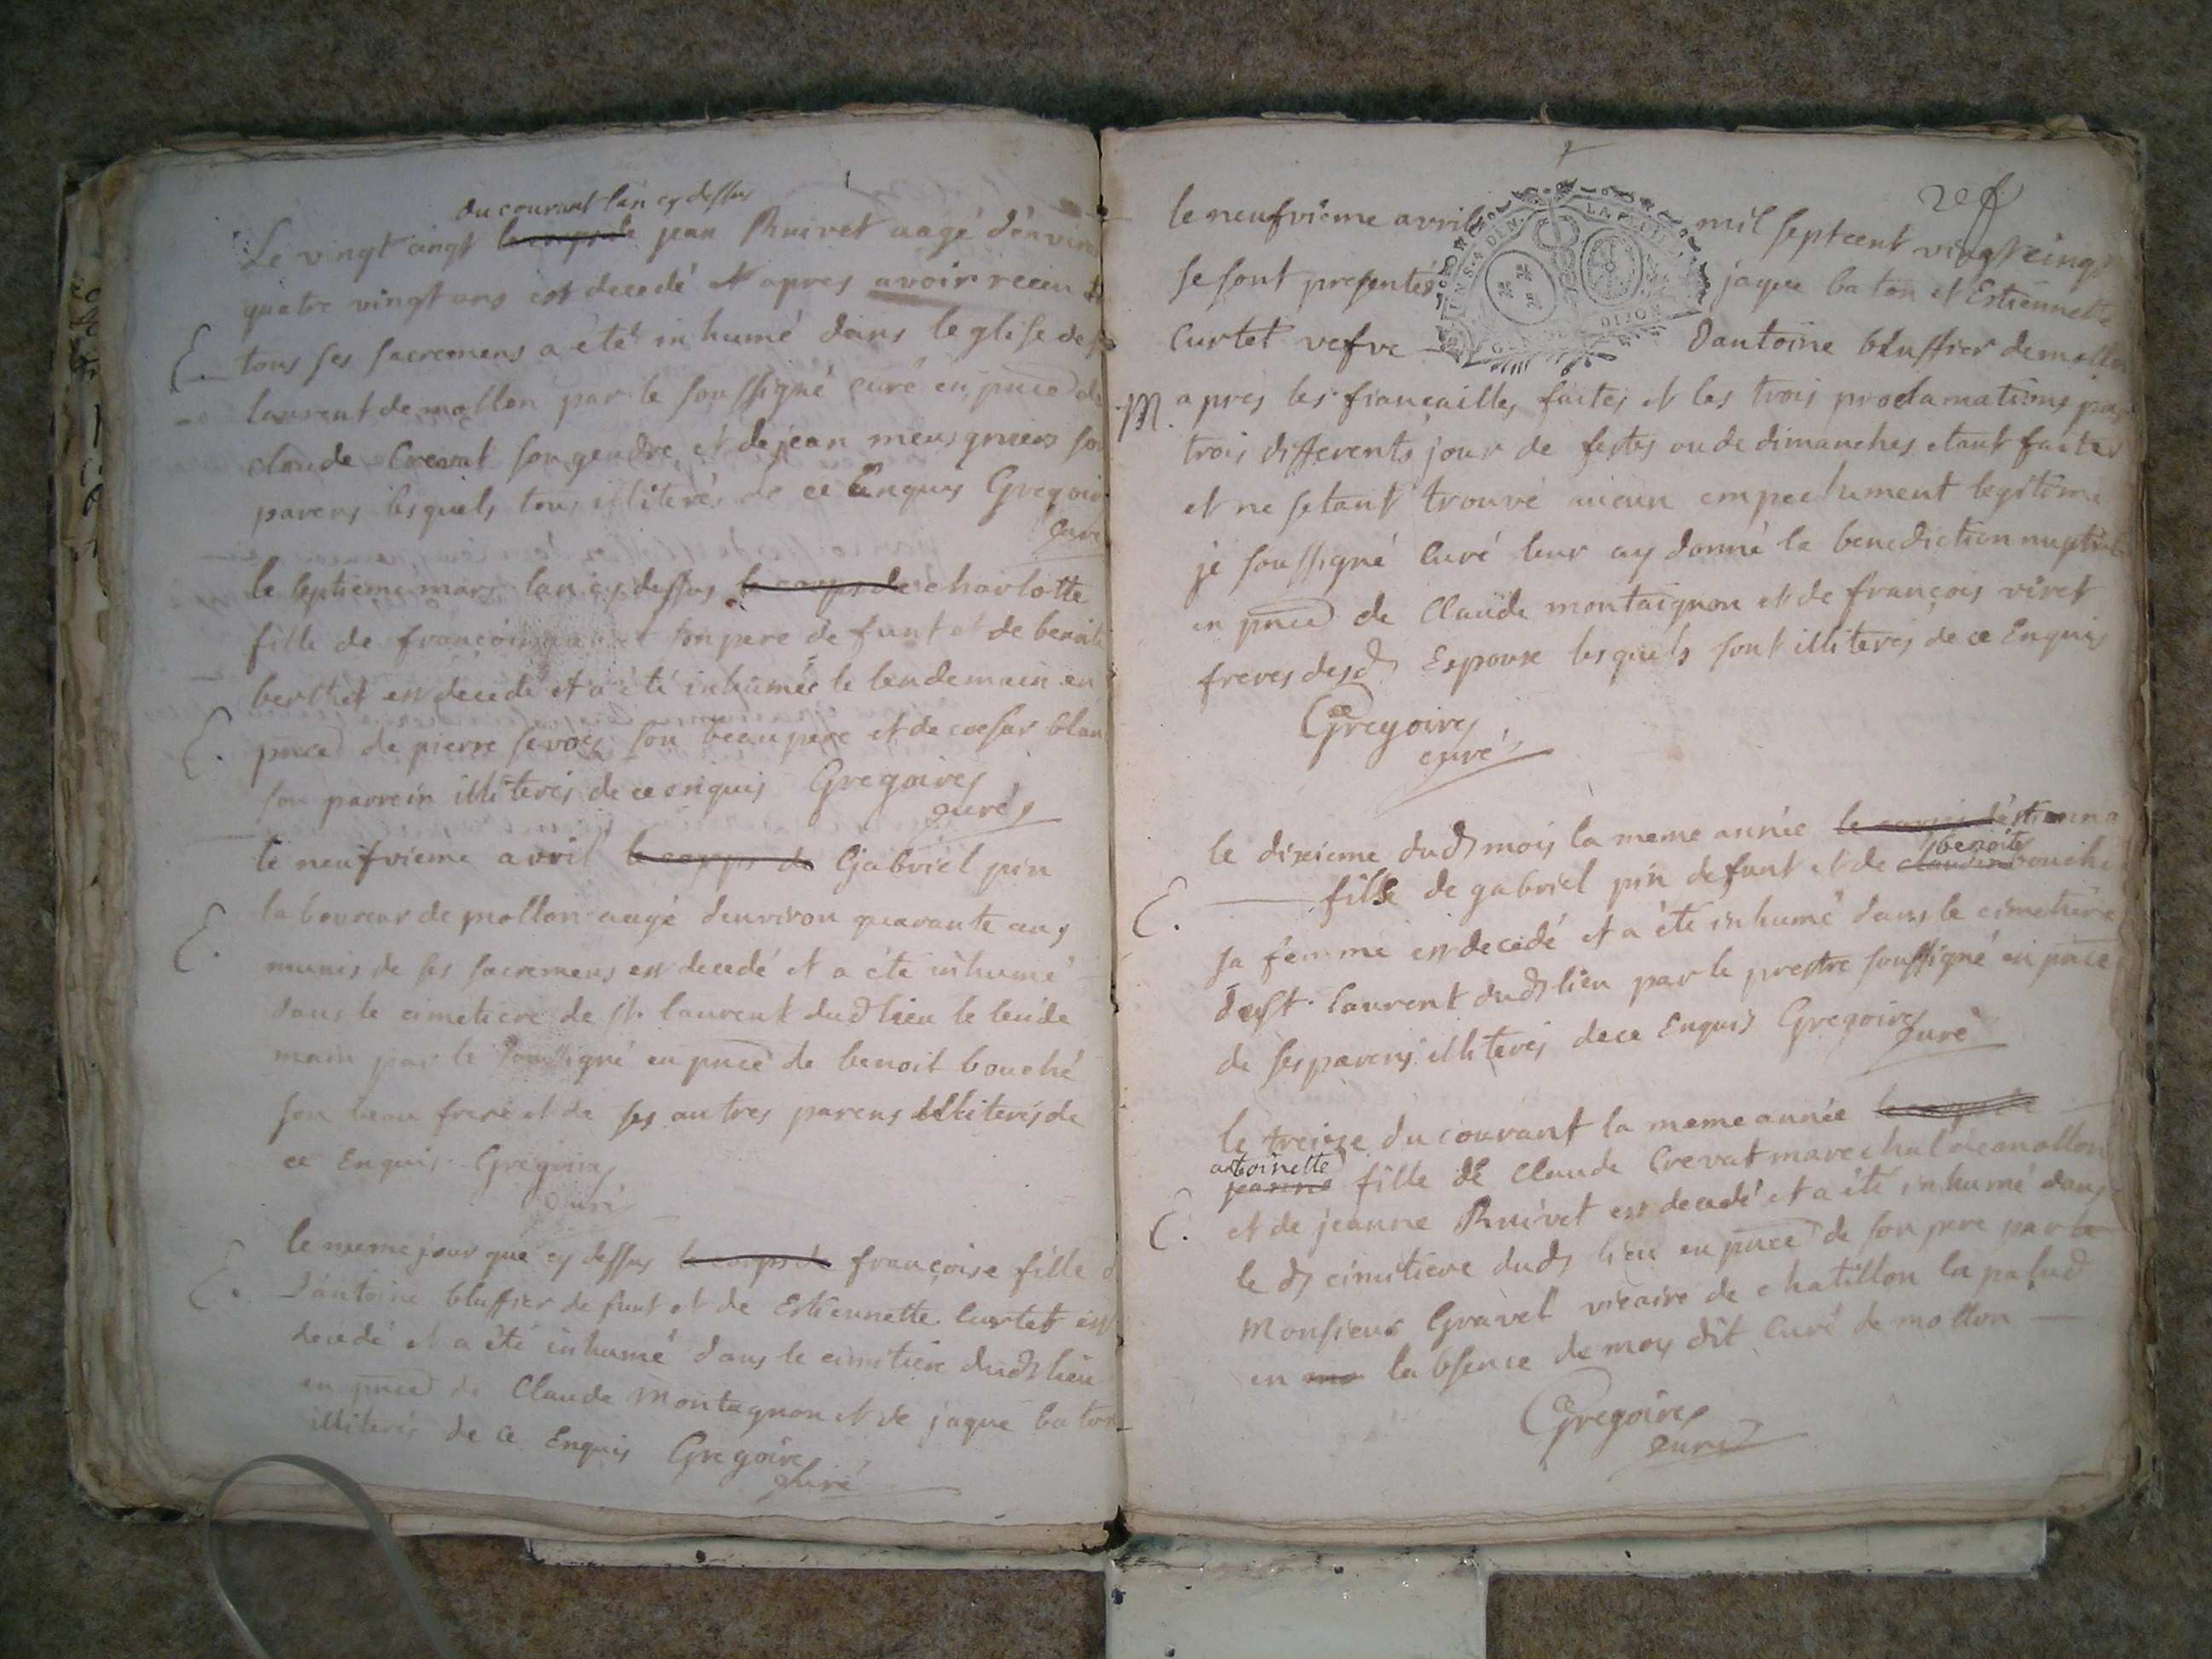 du courant lan cy dessus
Le vingt cinqt le corps de jean Ruivet aagé d'environ
quatre vingt ans est decedé et apres avoir receu
tous ses sacremens a eté inhumé dans leglise de
E.
laurent de mollon par le soussigné curé en pnce de
claude Crevat son gendre et de jean
parens lesquels tous illiterés de ce Enquis Gregoire
Curé
le septieme mars lan cy dessus le corps de charlotte
fille de son pere defunt et de benoite
berthet est decedé et a été inhumée le lendemain en
E.
pnce de pierre son beau pere et de coesar blan
son parrein illiterés de ce enquis Gregoire
curé
le neufvieme avril le corps de Gabriel pin
laboureur de mollon aagé denviron quarante ans
E.
munis de ses sacremens est decedé et a été inhumé
dans le cimetiere de st laurent dud lieu le lende
main par le soussigné en pnce de benoit bouché
son beau frere et de ses autres parens illiterés de
ce Enquis Gregoire
Curé
le meme jour que cy dessus le corps de françoise fille
E.
d'antoine bluffier defunt et de Estiennette Curtet est
decedé et a été inhumé dans le cimitiere dud lieu
en pnce de Claude Montagnon et de jaque baton
illiterés de ce Enquis Gregoire
Curé
le neufvieme avril mil septcent vingtcinq
se sont presentés jaque baton et Estiennette
GEN. DE DIJON
Curtet vefve Dantoine bluffier de mollon
M.
apres les fiancailles faites et les trois proclamations
trois differents jour de festes ou de dimanches etant faites
et ne setant trouvé aucun empechement legitime
je soussigné Curé leur ay donné la benediction nuptiale
en pnce de Claude montaignon et de françois viret
freres desd Espoux lesquels sont illiterés de ce Enquis
Gregoire
curé
le dixieme dud mois la meme année le corps
benoite
fille de gabriel pin defunt et de claudine bouché
E.
sa femme est decedé et a été inhumé dans le cimetiere
de st laurent dud lieu par le prestre soussigné en pnce
de ses parens illiterés de ce Enquis Gregoire
Curé
le treieze du courant la meme année le corps de
antoinette
jeanne fille de Claude Crevat marechal de mollon
E.
et de jeanne Ruivet est decedé et a été inhumé dans
le d cimitiere dud lieu en pnce de son pere par le
Monsieur Gravel vicaire de chatillon la palud
en labsence de moy dit Curé de mollon
Gregoire
curé